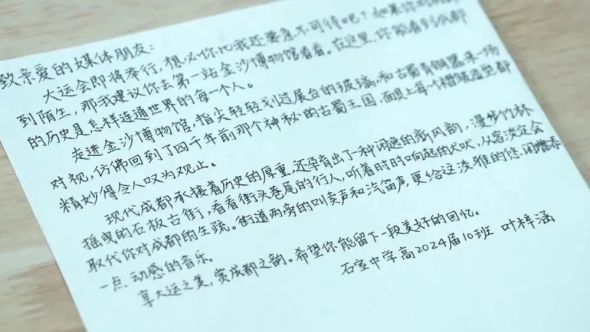 致亲爱的媒体朋友：
大运会即将举行，想必你比我还要急不可待吧？如果你对成都
到陌生，那我建议你去第一站金沙博物馆看看。在这里，你能看到成都
的历史是怎样连通世界的每一个人。
走进金沙博物馆，指尖轻轻划过展台的玻璃，和古蜀青铜器来一场
对视，仿佛回到了四千年前那个神秘的古蜀王国，面具上每一个
精妙得令人叹为观止。
现代成都承接着历史的厚重，还孕育出了一种闲逸的新风韵，漫步竹林
摇曳的石板古街，看看街头巷尾的行人，听着时时响起的犬吠，从容淡定会
取代你对成都的生疏。街道两旁的叫卖声和汽笛声，更给这淡雅的
一点动感的音乐。
享大运之美，赏成都之韵。希望你能留下一段美好的回忆。
石室中学高2024届10班 叶梓涵